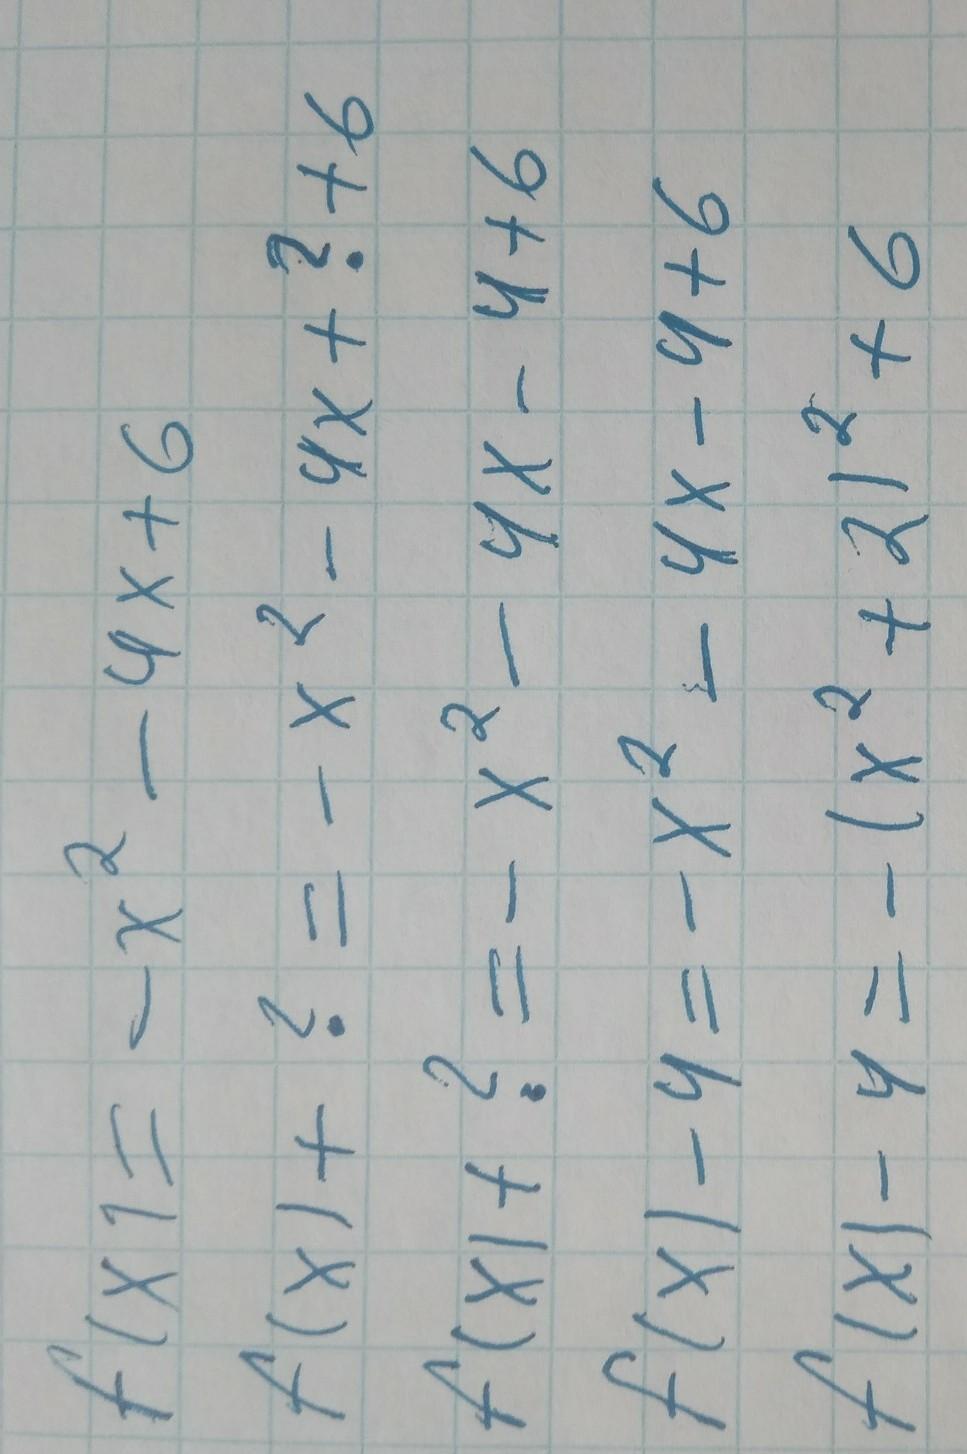 f(x) = -x² - 4x + 6
f(x) + ? = -x² - 4x + ? + 6
f(x) + ? = -x² - 4x - 4 + 6
f(x) - 4 = -x² - 4x - 4 + 6
f(x) - 4 = -(x² + 2)² + 6